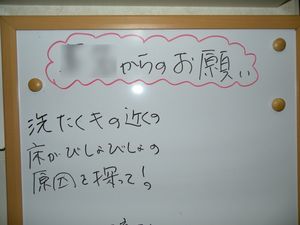 からのお願い
洗たくキの近くの
床がびしょびしょの
原因を探って！。